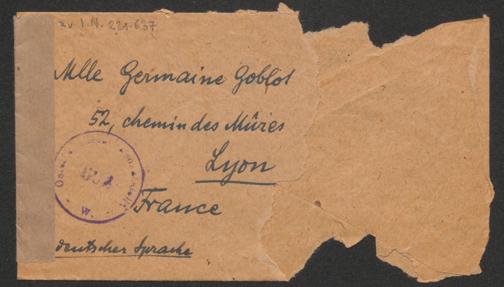 zu I.N. 221.637
Mlle Germaine Goblot
52, chemin des Mûres
Lyon
France
deutscher Sprache
W.